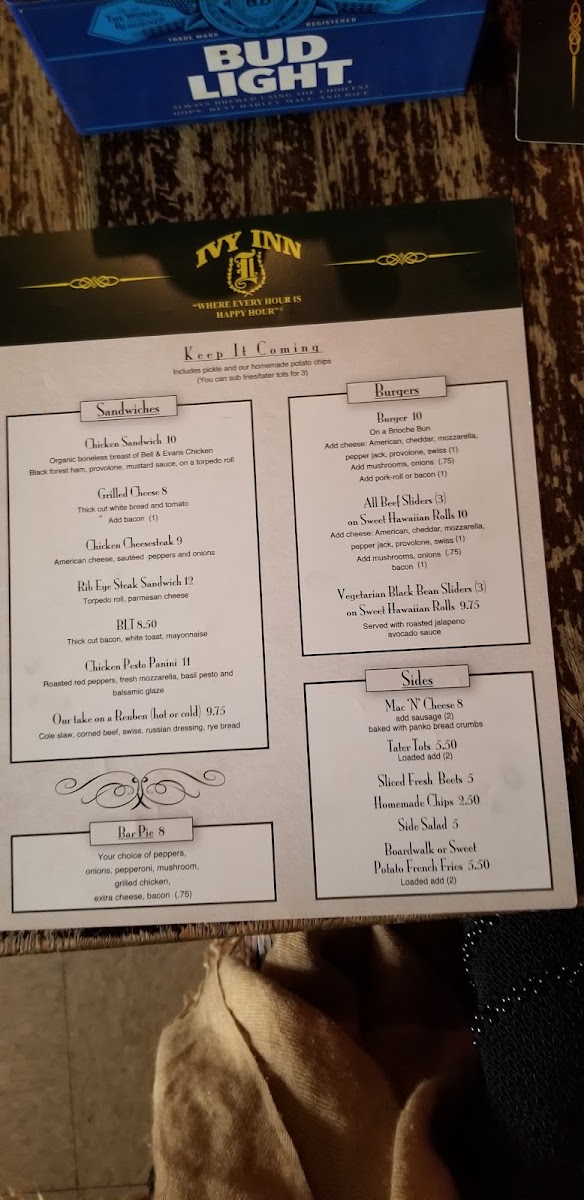 THE WORLD
RENOWNED
TRADE MARK
REGISTERED
BUD
LIGHT.
ALWAYS BREWED USING THE CHOICEST
HOPS, BEST BARLEY MALT AND RICE
IVY INN
"WHERE EVERY HOUR IS
HAPPY HOUR"®
Keep It Coming
Includes pickle and our homemade potato chips
(You can sub fries/tater tots for 3)
Sandwiches
Chicken Sandwich 10
Organic boneless breast of Bell & Evans Chicken
Black forest ham, provolone, mustard sauce, on a torpedo roll
Grilled Cheese 8
Thick cut white bread and tomato
Add bacon (1)
Chicken Cheesesteak 9
American cheese, sautéed peppers and onions
Rib Eye Steak Sandwich 12
Torpedo roll, parmesan cheese
BLT 8.50
Thick cut bacon, white toast, mayonnaise
Chicken Pesto Panini 11
Roasted red peppers, fresh mozzarella, basil pesto and
balsamic glaze
Our take on a Reuben (hot or cold) 9.75
Cole slaw, corned beef, swiss, russian dressing, rye bread
Bar Pie 8
Your choice of peppers,
onions, pepperoni, mushroom,
grilled chicken,
extra cheese, bacon (.75)
Burgers
Burger 10
On a Brioche Bun
Add cheese: American, cheddar, mozzarella,
pepper jack, provolone, swiss (1)
Add mushrooms, onions (.75)
Add pork-roll or bacon (1)
All Beef Sliders (3)
on Sweet Hawaiian Rolls 10
Add cheese: American, cheddar, mozzarella,
pepper jack, provolone, swiss (1)
Add mushrooms, onions (.75)
bacon (1)
Vegetarian Black Bean Sliders (3)
on Sweet Hawaiian Rolls 9.75
Served with roasted jalapeno
avocado sauce
Sides
Mac 'N' Cheese 8
add sausage (2)
baked with panko bread crumbs
Tater Tots 5.50
Loaded add (2)
Sliced Fresh Beets 5
Homemade Chips 2.50
Side Salad 5
Boardwalk or Sweet
Potato French Fries 5.50
Loaded add (2)